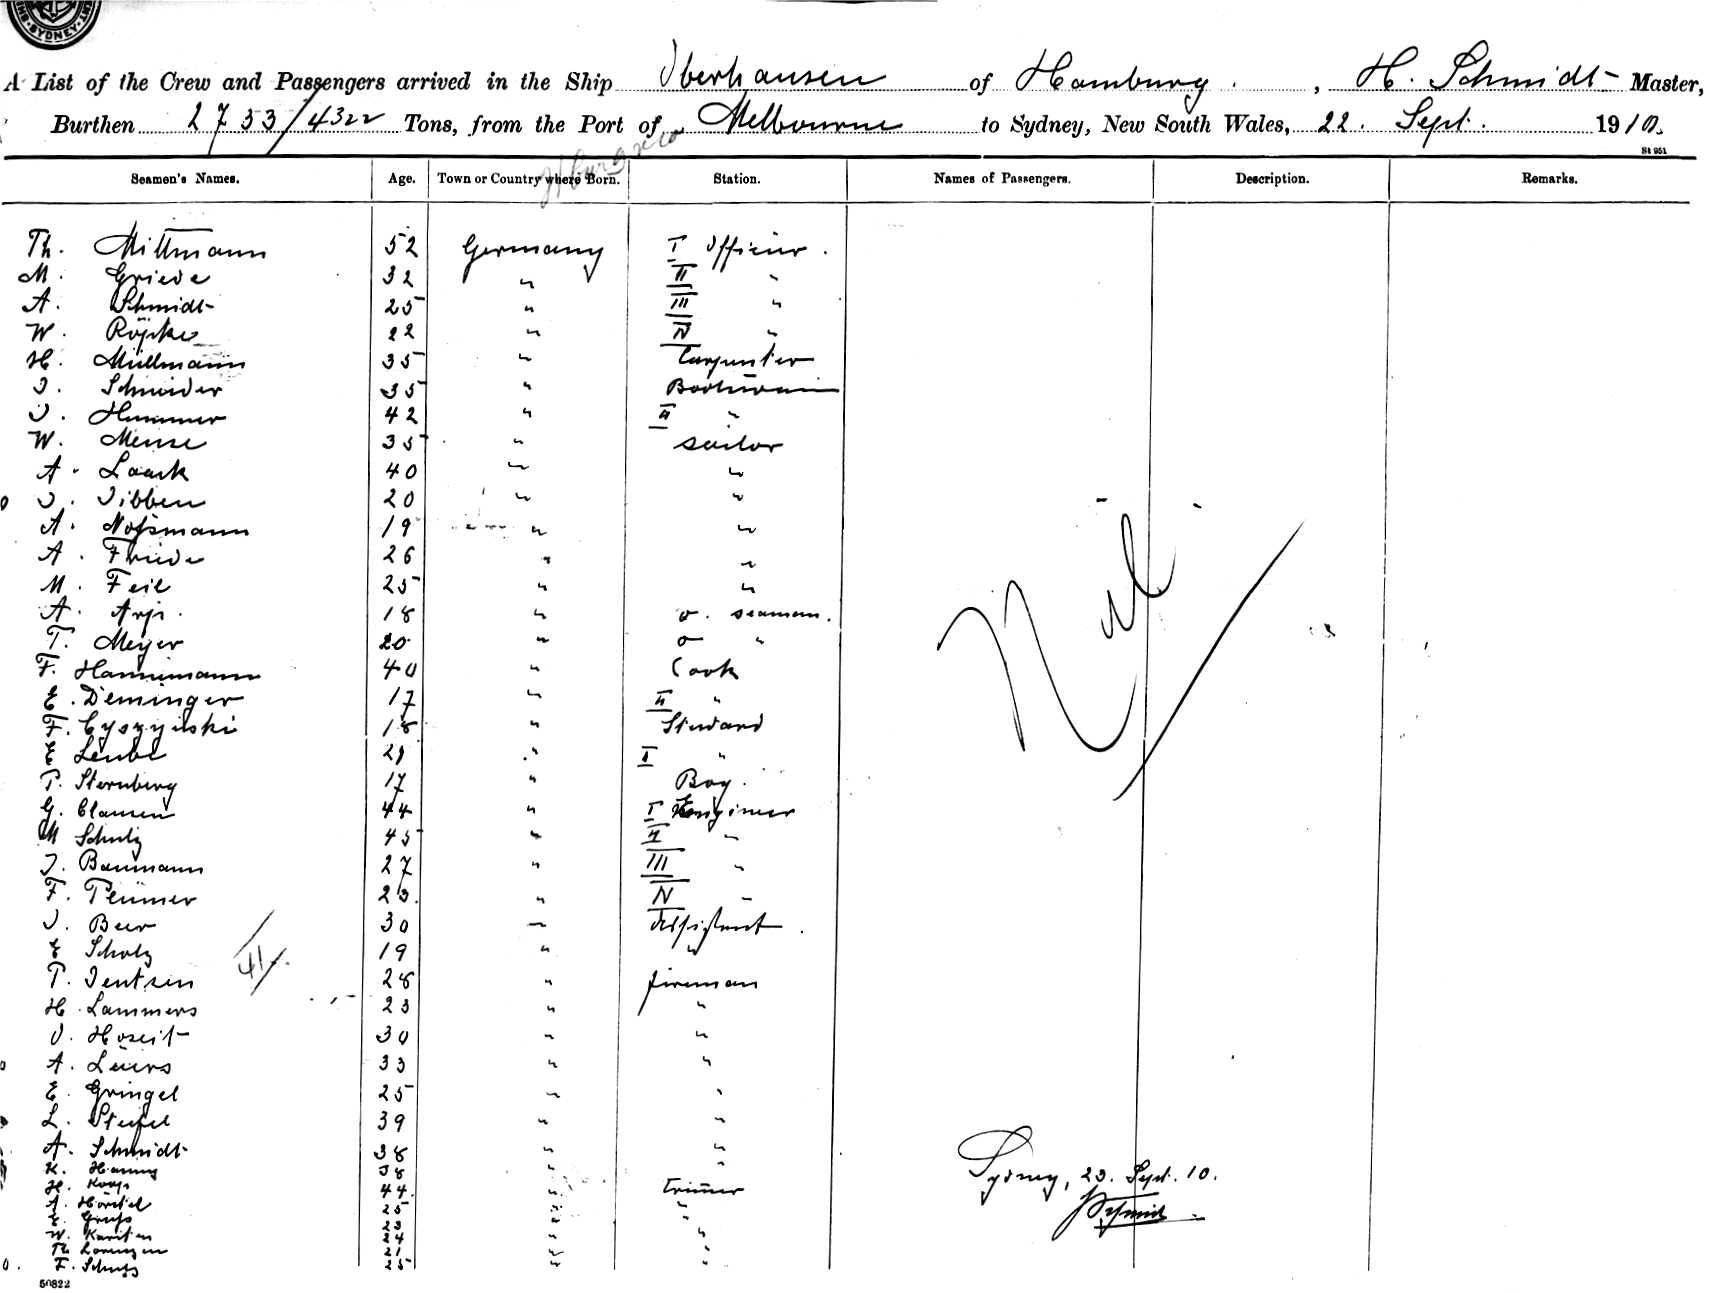 SYDNEY
A List of the Crew and Passengers arrived in the Ship Oberhausen of Hamburg, H. Schmidt Master,
Burthen 2733/4322 Tons, from the Port of Melbourne to Sydney, New South Wales, 22. Sept. 1910.
St 951
Seamen's Names. Age. Town or Country where Born. Station. Names of Passengers. Description. Remarks.
Th. Mittmann 52 Germany I Officier.
M. Griede 32 " II "
A. Schmidt 25 " III "
W. Röpke 22 " IV "
H. Müllmann 35 " Carpenter
J. Schneider 35 " Bootswain
J. Hummer 42 " II "
W. Meuse 35 " sailor
A. Laack 40 " "
J. Tibben 20 " "
A. Noßmann 19 " "
A. Friede 26 " "
M. Feil 25 " "
A. Arp. 18 " o. seaman.
T. Meyer 20 " o "
F. Hannemann 40 " Cook
E. Deminger 17 " II "
F. Cyszynski 18 " Steward
E Leube 21 " II "
P. Sternberg 17 " Boy.
G. Clausen 44 " I Engineer
M Schulz 45 " II "
J. Baumann 27 " III "
F. 23. " IV "
J. Beer 30 " Assistent
E Scholz 19 " "
41/.
P. Jentsen 28 " fireman
H. Lammers 23 " "
J. Hoseit 30 " "
A. Lüers 33 " "
E. Gringel 25 " "
L. Stiefel 39 " "
A. Schmidt 38 " "
K. 38 " "
H. Koops 44. " trimmer
A. Hörstel 25 " "
E. Groß 23 " "
W. Karsten 24 " "
Th Lorenzen 21 " "
F. Schulz 25 " "
50822
Nil
Sydney, 23. Sept. 10.
HSchmidt